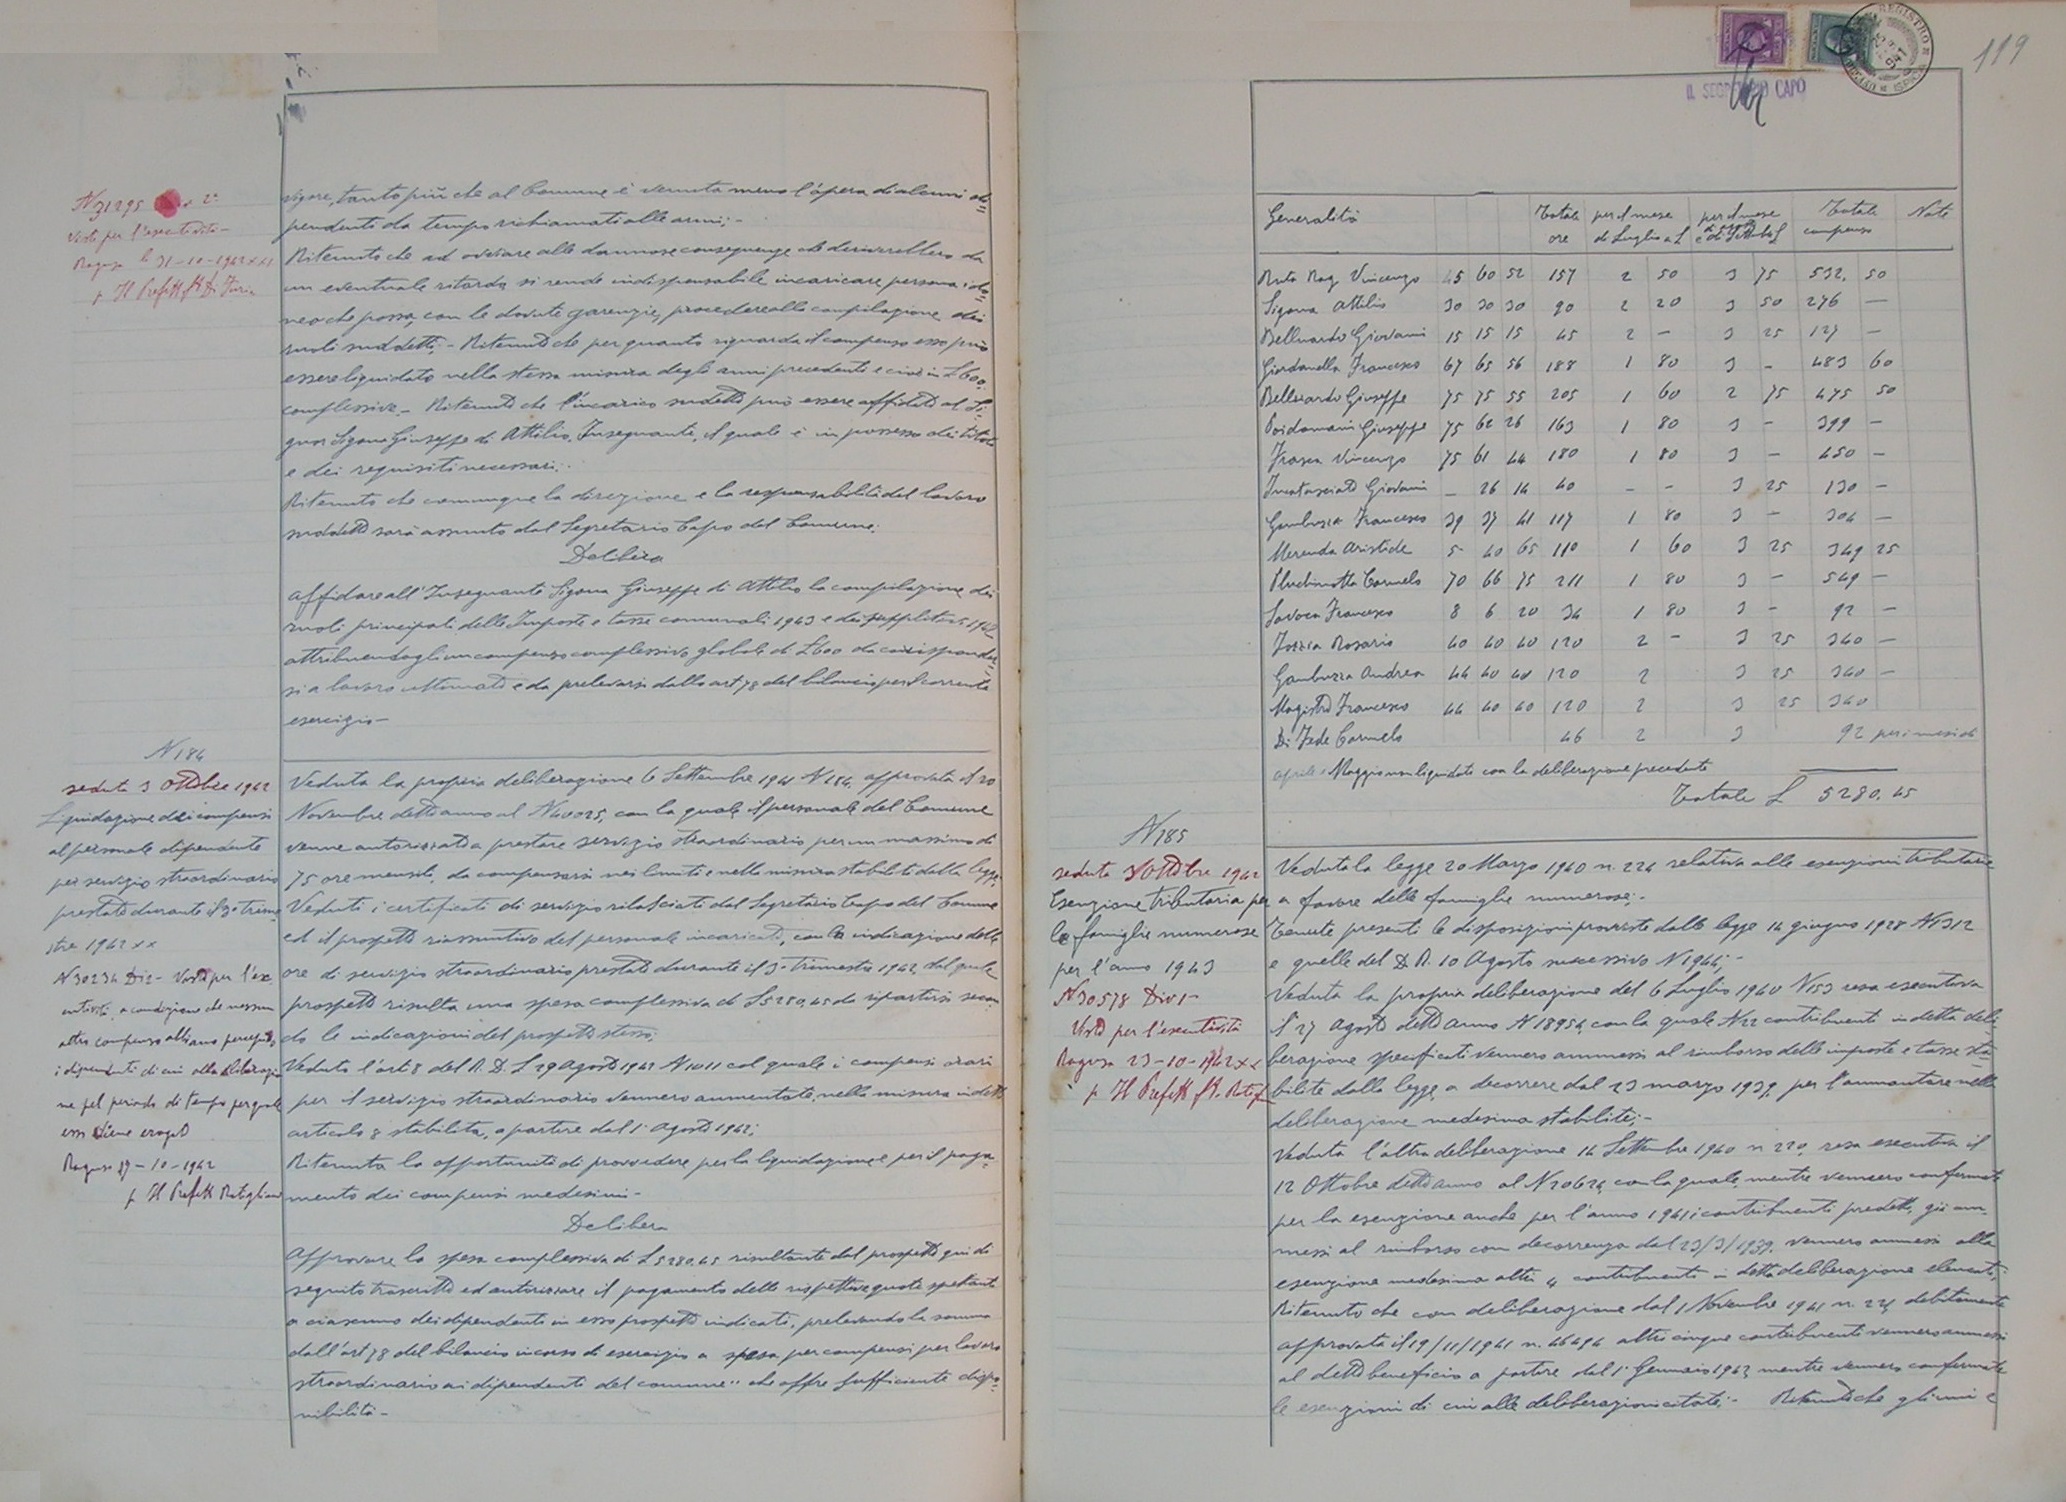 N 31295 2ª
Visto per l'esecutività -
Ragusa li 31-10-1942 XXI
p Il Prefetto
vigore, tanto più che al Comune è venuta meno l'opera di alcuni di=
pendenti da tempo richiamati alle armi; -
Ritenuto che ad ovviare alle dannose conseguenze che deriverebbero da
un eventuale ritardo si rende indispensabile incaricare persona ido=
neo che possa, con le dovute garenzie, procedere alla compilazione dei
ruoli suddetti; - Ritenuto che per quanto riguarda il compenso esso può
essere liquidato nella stessa misura degli anni precedenti e cioè in L 600
complessive. - Ritenuto che l'incarico suddetto può essere affidato al Si=
gnor Sigona Giuseppe di Attilio, Insegnante, il quale è in possesso dei titoli
e dei requisiti necessari.
Ritenuto che comunque la direzione e la responsabilità del lavoro
suddetto sarà assunto dal Segretario Capo del Comune.
Delibera
affidare all'Insegnante Sigona Giuseppe di Attilio la compilazione dei
ruoli principali delle Imposte e tasse comunali 1943 e dei suppletivi 1942
attribuendogli un compenso complessivo globale di L 600 da corrisponder=
si a lavoro ultimato e da prelevarsi dallo art 78 del bilancio per il corrente
esercizio -
N 184
seduta 3 Ottobre 1942
Liquidazione dei compensi
al personale dipendente
per servizio straordinario
prestato durante il 3º trime
stre 1942 XX
N 30234 Div 2 - Visto per l'ese
cutività, a condizione che nessun
altro compenso abbiano percepito
i dipendenti di cui alla deliberazio
ne pel periodo di tempo per quale
essi viene erogato
Ragusa 29-10-1942
p Il Prefetto Ratigliano
Veduta la propria deliberazione 6 Settembre 1941 N 184, approvata il 20
Novembre detto anno al N 40025, con la quale il personale del Comune
venne autorizzato a prestare servizio straordinario per un massimo di
75 ore mensili, da compensarsi nei limiti e nella misura stabiliti dalla legge;
Veduti i certificati di servizio rilasciati dal Segretario Capo del Comune
ed il prospetto riassuntivo del personale incaricato, con la indicazione delle
ore di servizio straordinario prestato durante il 3º Trimestre 1942, dal quale
prospetto risulta una spesa complessiva di L 5280,45 da ripartirsi secon
do le indicazioni del prospetto stesso.
Veduto l'art 8 del R. D. L 29 Agosto 1942 N 1011 col quale i compensi orari
per il servizio straordinario vennero aumentate, nella misura in detto
articolo 8 stabilita, a partire dal 1º Agosto 1942;
Ritenuta la opportunità di provvedere per la liquidazione e per il paga=
mento dei compensi medesimi -
Delibera
Approvare la spesa complessiva di L 5280.45 risultante dal prospetto qui di
seguito trascritto ed autorizzare il pagamento delle rispettive quote spettanti
a ciascuno dei dipendenti in esso prospetto indicati, prelevando la somma
dall'art 78 del bilancio in corso di esercizio "spesa per compensi per lavoro
straordinario ai dipendenti del comune" che offre sufficiente dispo=
nibilità -
119
IL SEGRETARIO CAPO
REGISTRO ISPICA
Generalità Totale ore per il mese di Luglio a L per il mese di agosto e di Settembre L Totale compenso Note
Ruta Rag. Vincenzo 45 60 52 157 2 50 3 75 532. 50
Sigona Attilio 30 30 30 90 2 20 3 50 276 —
Belluardo Giovanni 15 15 15 45 2 - 3 25 127 —
Giordanella Francesco 67 65 56 188 1 80 3 - 483 60
Belluardo Giuseppe 75 75 55 205 1 60 2 75 475 50
Poidomani Giuseppe 75 62 26 163 1 80 3 - 399 —
Frasca Vincenzo 75 61 44 180 1 80 3 - 450 —
Incatasciato Giovanni - 26 14 40 - - 3 25 130 —
Gambuzza Francesco 39 37 41 117 1 80 3 - 304 —
Merenda Aristide 5 40 65 110 1 60 3 25 349 25
Pluchinotta Carmelo 70 66 75 211 1 80 3 - 549 —
Savoca Francesco 8 6 20 34 1 80 3 - 92 —
Iozzia Rosario 40 40 40 120 2 - 3 25 340 —
Gambuzza Andrea 44 40 40 120 2 3 25 340 —
Magistro Francesco 44 40 40 120 2 3 25 340
Di Fede Carmelo 46 2 3 92 per i mesi di
aprile e Maggio non liquidato con la deliberazione precedente
Totale L 5280.45
N 185
seduta 3 Ottobre 1942
Esenzione tributaria per
le famiglie numerose
per l'anno 1943
N 30578 Div 1 -
Visto per l'esecutività
Ragusa 23-10-1942 XX
p Il Prefetto
Veduta la legge 20 Marzo 1940 n. 224 relativa alle esenzioni tributarie
a favore delle famiglie numerose; -
Tenute presenti le disposizioni previste dalla legge 14 giugno 1928 N 1312
e quelle del D. R. 10 Agosto successivo N 1944; -
Veduta la propria deliberazione del 6 Luglio 1940 N 153 resa esecutiva
il 27 Agosto detto anno N 18954, con la quale N 22 contribuenti in detta deli
berazione specificati vennero ammessi al rimborso delle imposte e tasse sta
bilite dalla legge, a decorrere dal 23 marzo 1939, per l'ammontare nella
deliberazione medesima stabilite; -
Veduta l'altra deliberazione 14 Settembre 1940 n 220, resa esecutiva il
12 Ottobre detto anno al N 20624, con la quale, mentre vennero confermati
per la esenzione anche per l'anno 1941 i contribuenti predetti, già am-
messi al rimborso con decorrenza dal 23/3/1939, vennero ammessi alla
esenzione medesima altri 4 contribuenti in detta deliberazione elencati;
Ritenuto che con deliberazione dal 1 Novembre 1941 n. 224 debitamente
approvata il 19/11/1941 n. 46494 altri cinque contribuenti vennero ammessi
al detto beneficio a partire dal 1º Gennaio 1942, mentre vennero confermate
le esenzioni di cui alle deliberazioni citate; - Ritenuto che gli uni e